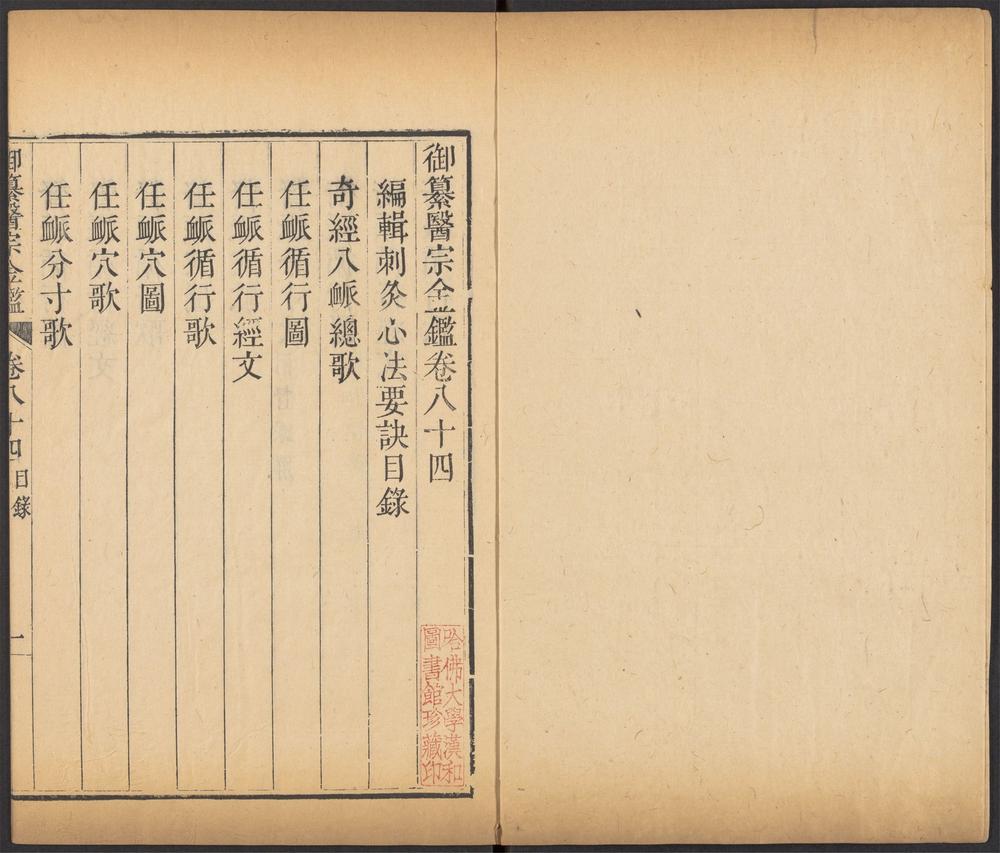 御纂醫宗金鑑卷八十四
編輯刺灸心法要訣目錄
奇經八脈總歌
任脈循行圖
任脈循行經文
任脈循行歌
任脈穴圖
任脈穴歌
任脈分寸歌
御纂醫宗金鑑 卷八十四 目錄 一
哈佛大學漢和
圖書館珍藏印